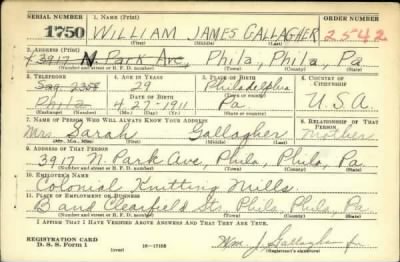 SERIAL NUMBER 1. NAME (Print) ORDER NUMBER
1750 WILLIAM JAMES GALLAGHER 2542
(First) (Middle) (Last)
2. ADDRESS (Print)
3917 N. Park Ave, Phila, Phila, Pa
(Number and street or R. F. D. number) (Town) (County) (State)
3. TELEPHONE 4. AGE IN YEARS 5. PLACE OF BIRTH 6. COUNTRY OF CITIZENSHIP
Sag. 2358 29 Philadelphia
DATE OF BIRTH (Town or county)
Phila 4-27-1911 Pa. U.S.A.
(Exchange) (Number) (Mo.) (Day) (Yr.) (State or country)
7. NAME OF PERSON WHO WILL ALWAYS KNOW YOUR ADDRESS 8. RELATIONSHIP OF THAT PERSON
Mrs. Sarah Gallagher Mother
(Mr., Mrs., Miss) (First) (Middle) (Last)
9. ADDRESS OF THAT PERSON
3917 N. Park Ave, Phila, Phila, Pa
(Number and street or R. F. D. number) (Town) (County) (State)
10. EMPLOYER'S NAME
Colonial Knitting Mills.
11. PLACE OF EMPLOYMENT OR BUSINESS
B and Clearfield Sts. Phila, Phila, Pa.
(Number and street or R. F. D. number) (Town) (County) (State)
I AFFIRM THAT I HAVE VERIFIED ABOVE ANSWERS AND THAT THEY ARE TRUE.
REGISTRATION CARD
D. S. S. Form 1 (over) 16-17105 Wm. J. Gallagher Jr.
(Registrant's signature)